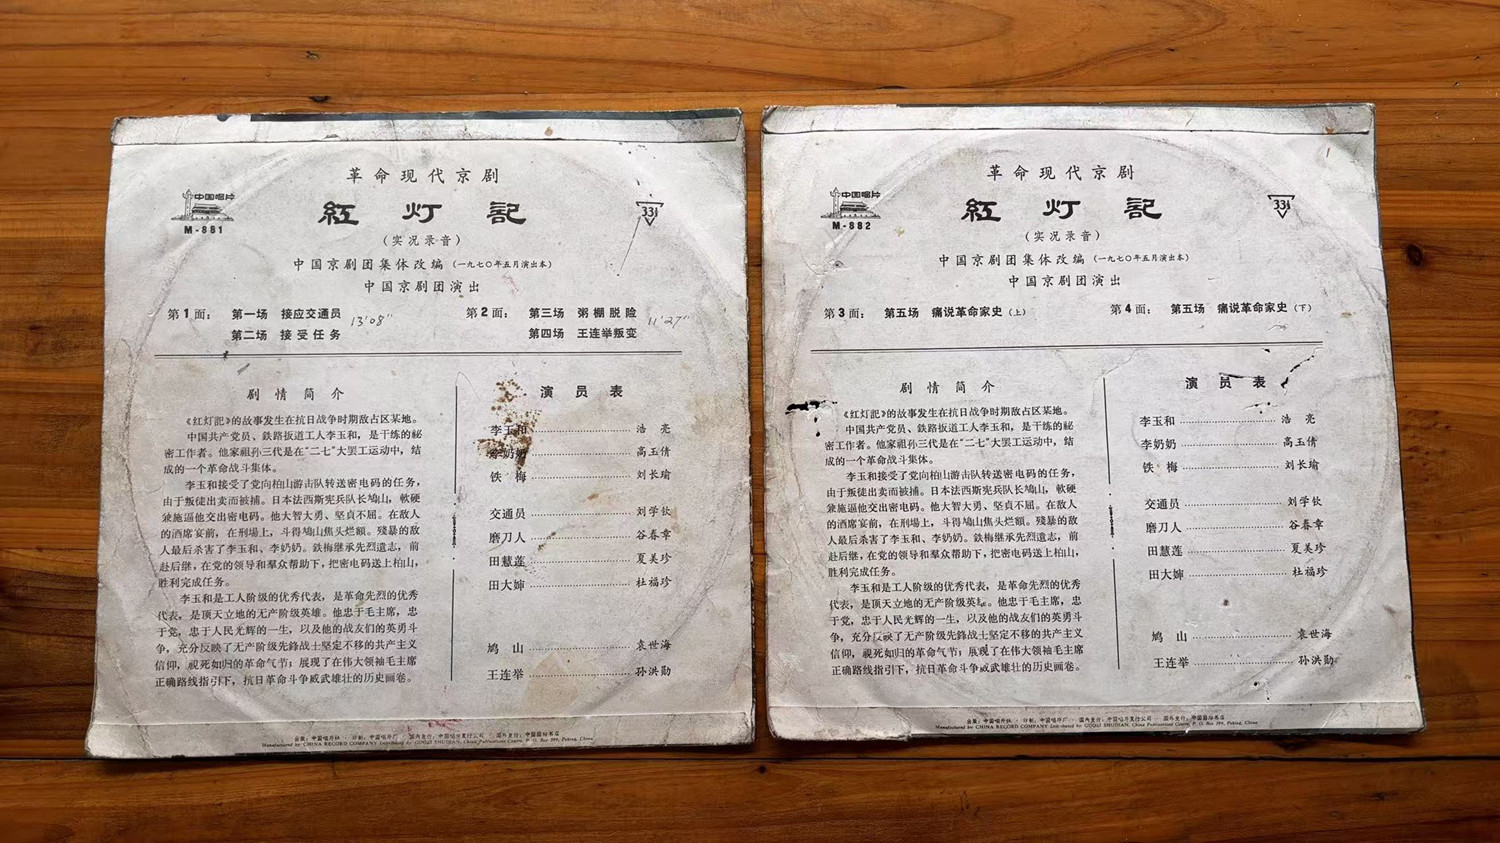 革命现代京剧
中国唱片
M-881
紅灯記
33⅓
（实况录音）
中国京剧团集体改编（一九七〇年五月演出本）
中国京剧团演出
第1面： 第一场 接应交通员
第二场 接受任务
13'08"
第2面： 第三场 粥棚脱险
第四场 王连举叛变
11'27"
剧情简介
《红灯記》的故事发生在抗日战争时期敌占区某地。
中国共产党员、铁路扳道工人李玉和，是干练的秘
密工作者。他家祖孙三代是在“二七”大罢工运动中，结
成的一个革命战斗集体。
李玉和接受了党向柏山游击队转送密电码的任务，
由于叛徒出卖而被捕。日本法西斯宪兵队长鳩山，軟硬
兼施逼他交出密电码。他大智大勇、坚贞不屈。在敌人
的酒席宴前，在刑場上，斗得鳩山焦头烂額。殘暴的敌
人最后杀害了李玉和、李奶奶。鉄梅继承先烈遺志，前
赴后继，在党的领导和羣众帮助下，把密电码送上柏山，
胜利完成任务。
李玉和是工人阶级的优秀代表，是革命先烈的优秀
代表，是頂天立地的无产阶级英雄。他忠于毛主席，忠
于党，忠于人民光輝的一生，以及他的战友们的英勇斗
争，充分反映了无产阶级先鋒战士坚定不移的共产主义
信仰，視死如归的革命气节；展現了在伟大领袖毛主席
正确路线指引下，抗日革命斗争威武雄壮的历史画卷。
演员表
李玉和 浩亮
李奶奶 高玉倩
铁梅 刘长瑜
交通员 刘学钦
磨刀人 谷春章
田慧莲 夏美珍
田大婶 杜福珍
鸠山 袁世海
王连举 孙洪勋
出版：中国唱片社 · 印制：中国唱片厂 · 国内发行：中国唱片发行公司 · 国外发行：中国国际书店
Manufactured by CHINA RECORD COMPANY Distributed by GUOZI SHUDIAN, China Publications Centre, P. O. Box 399, Peking, China
革命现代京剧
中国唱片
M-882
紅灯記
33⅓
（实况录音）
中国京剧团集体改编（一九七〇年五月演出本）
中国京剧团演出
第3面： 第五场 痛说革命家史（上）
第4面： 第五场 痛说革命家史（下）
剧情简介
《红灯記》的故事发生在抗日战争时期敌占区某地。
中国共产党员、鉄路扳道工人李玉和，是干练的祕
密工作者。他家祖孙三代是在“二七”大罢工运动中，结
成的一个革命战斗集体。
李玉和接受了党向柏山游击队转送密电码的任务，
由于叛徒出卖而被捕。日本法西斯宪兵队长鳩山，軟硬
兼施逼他交出密电码。他大智大勇、坚贞不屈。在敌人
的酒席宴前，在刑場上，斗得鳩山焦头烂額。殘暴的敌
人最后杀害了李玉和、李奶奶。鉄梅继承先烈遺志，前
赴后继，在党的领导和羣众帮助下，把密电码送上柏山，
胜利完成任务。
李玉和是工人阶级的优秀代表，是革命先烈的优秀
代表，是頂天立地的无产阶级英雄。他忠于毛主席，忠
于党，忠于人民光輝的一生，以及他的战友们的英勇斗
争，充分反映了无产阶级先鋒战士坚定不移的共产主义
信仰，視死如归的革命气节；展现了在伟大领袖毛主席
正确路线指引下，抗日革命斗争威武雄壮的历史画卷。
演员表
李玉和 浩亮
李奶奶 高玉倩
铁梅 刘长瑜
交通员 刘学钦
磨刀人 谷春章
田慧莲 夏美珍
田大婶 杜福珍
鸠山 袁世海
王连举 孙洪勋
出版：中国唱片社 · 印制：中国唱片厂 · 国内发行：中国唱片发行公司 · 国外发行：中国国际书店
Manufactured by CHINA RECORD COMPANY Distributed by GUOZI SHUDIAN, China Publications Centre, P. O. Box 399, Peking, China